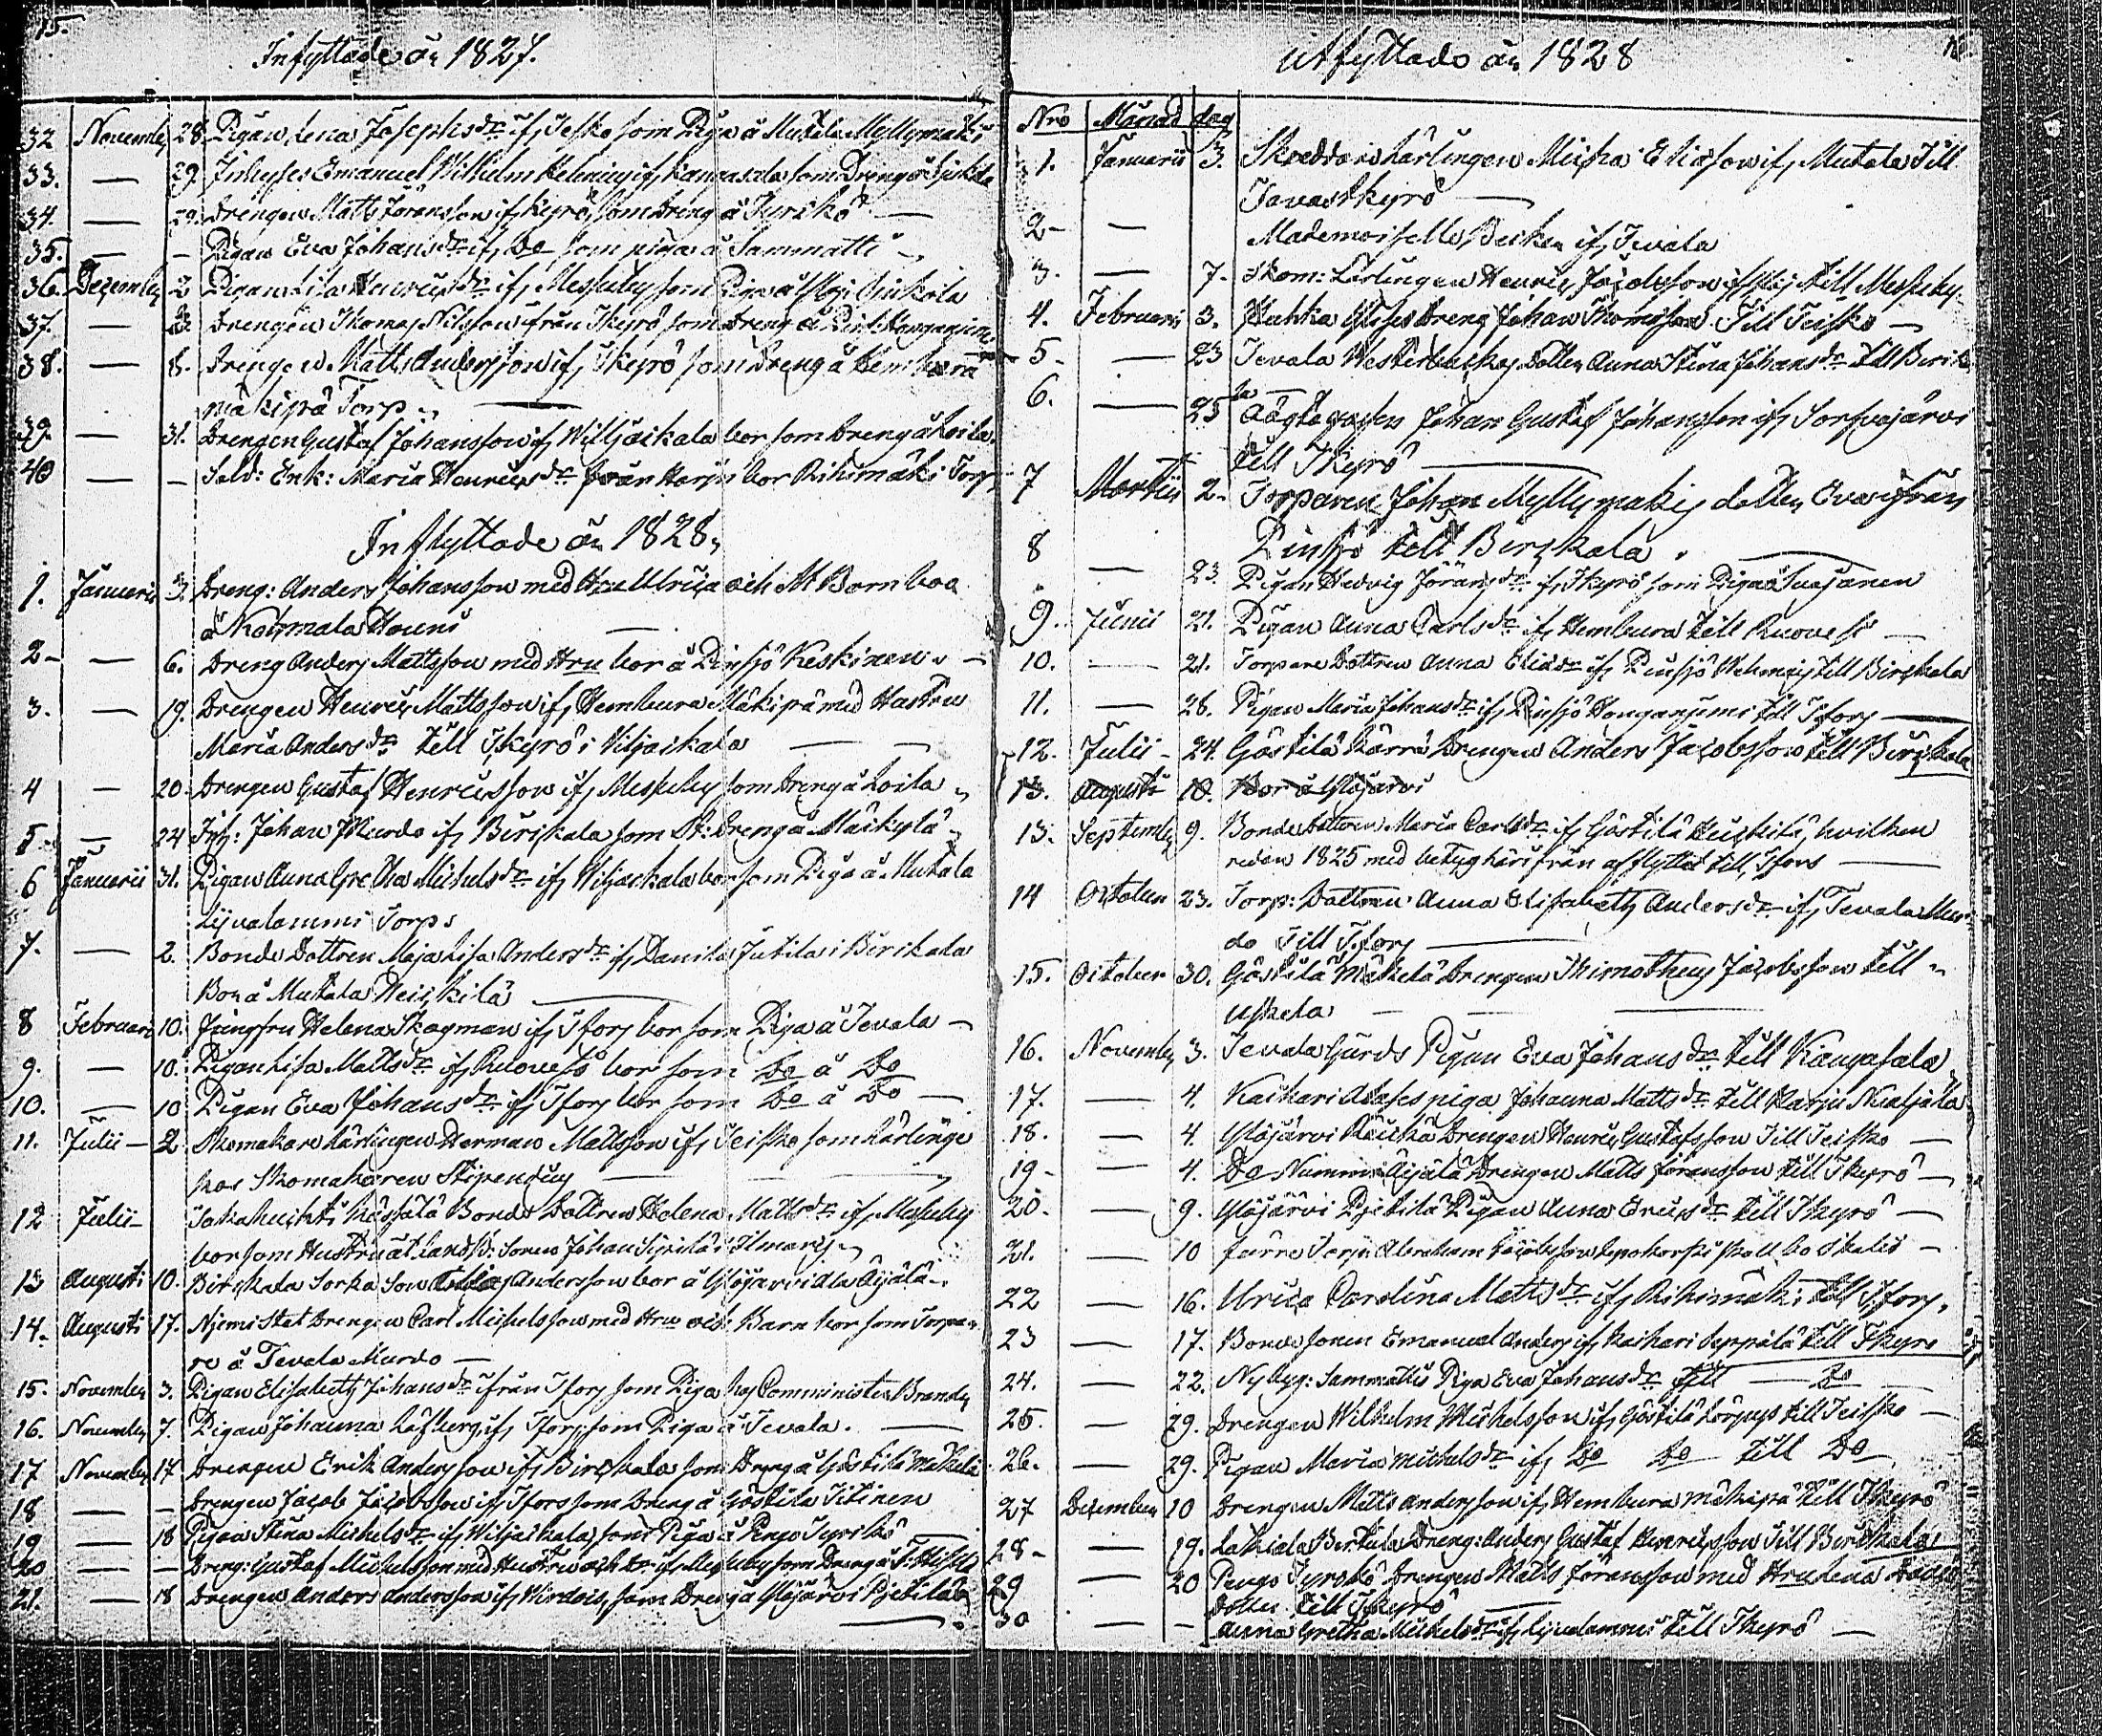 15.
Inflyttade år 1827.
32 Novembr 28. Pigan Lena Josephs dr ifr Teisko som Piga å Mutala Myllymäki
33. — 29 Inhyses Emanuel Wilhelm ifr Kangasala som Dreng å
34. — 29. Drengen Matts Jöransson ifr Kyrö som Dreng å Tyrikö —
35. — - Pigan Eva Johans dr ifr Do som piga å Sammatti
36. Dezember 2 Pigan Lisa Henrics dr ifr Messuby som Piga å
37. — Drengen Thomas Nilsson ifrån Ikyrö som Dreng å
38. — 8. Drengen Matts Andersson ifr Ikyrö som Dreng å
mäkipä Torp —
39. — 31. Drengen Gustaf Johansson ifr Wiljaikala bor som Dreng å Loila
40 — - Sold: Enk: Maria Henrics dr från Harju bor Rihimäki Torp
Inflyttade år 1828
1. Januarii 3. Dreng: Anders Johansson med Hru Ulrica och Barn boa
å Keijmala Houni —
2 - — 6. Dreng Anders Mattsson med Hru bor å Pinsjö Keskinen —
3. — 19. Drengen Henric Mattsson ifr Hembura Mäkipä med Hustru
Maria Anders dr till Ikyrö i Viljaikala — —
4 — 20 Drengen Gustaf Henricsson ifr Messuby som Dreng å Loila
5. — 24 Inh: Johan Murdo ifr Birckala som Dreng å Mäkylä
6 Januarii 31. Pigan Anna Gretha Michels dr ifr Wiljackala bor som Piga å Mutala
Lijvalammi Torp
7. — 2. Bonde Dottren Maja Lisa Anders dr ifr Danila Jutila i Birckala
Bor å Mutala Heickilä —
8 Februari 10. Jungfru Helena Skogman ifr Tfors bor som Piga å Tevala —
9. — 10. Pigan Lisa Matts dr ifr Ruovesi bor som Do å Do
10. — 10 Pigan Eva Johans dr ifr Tfors bor som Do å Do —
11. Julii — 2 Skomakare Lärlingen Herman Mattsson ifr Teisko som Lärlinge
hos Skomakaren Stipendius —
12 Julii — Bonde Dottren Helena Matts dr ifr Messuby
bor som Hustru åt Landsb: Sonen Johan Sipilä i Ilmaris
13 Augusti 10. Birckala Sorka Son Andersson bor å Ylöjärvi Ala Äijälä
14. Augusti 17. Njemistat Drengen Carl Michelsson med Hru och Barn bor som Torpa-
re å Tevala Murdo —
15. November 3. Pigan Elisabeth Johans dr ifrån Tfors som Piga hos Comminister Brander
16. November 7. Pigan Johanna Löfberg ifr Tfors som Piga å Tevala. —
17 November 17 Drengen Erik Andersson ifr Birckala som Dreng å Göstilä Mäkelä
18 — - Drengen Jacob Jacobsson ifr Tfors som Dreng å Göstilä Titinen
19 — 18 Pigan Stina Michels dr ifr Wiljaikala som Piga å Pengo Tyrikö —
20 — - Dreng: Gustaf Michelsson med Hustru och dr ifr Messuby som Dreng å
21. — 18 Drengen Anders Andersson ifr Wirdois som Dreng å Ylöjärvi Pjetilä
utflyttade år 1828
Nro Månad dag
1. Januarii 3. Skreddare Lärlingen Micha Eliasson ifr Mutala Till
Tavastkyrö —
2 - — Mademoiselle Becker ifr Tevala
3. — 7. Skom: Lärlingen Henric Jacobsson till Messuby
4. Februarii 3. Dreng Johan Thomson Till Teisko —
5. — 23 Tevala Westerbackas Dotter Anna Stina Johans dr till Birck-
la
6. — 25 Johan Gustaf Johansson ifr
till Ikyrö —
7 Martii 2. Torparen Johan Myllymäkis dotter Eva ifrån
Pinsjö till Birckala.
8 — 23. Pigan Hedvig Jörans dr ifr Ikyrö som Piga å Suojanen
9. Junii 21. Pigan Anna Carls dr ifr Hembura till Ruovesi —
10. — 21. Torpare Dottren Anna Elias dr ifr Pinsjö till Birckala
11. — 28. Pigan Maria Johans dr ifr Pinsjö Honganjemi till Tfors —
12. Julii - 24. Göstilä Kärrä Drengen Anders Jacobsson till Birckala
13. Augusti 10. Bor å Ylöjärvi
13. September 9. Bonde dottren Maria Carls dr ifr Göstilä Heickilä, hvilken
redan 1825 med betyg härifrån afflyttat till Tfors —
14 October 23. Torp: Dottren Anna Elisabeth Anders dr ifr Tevala Mur-
do Till Tfors —
15. October 30. Göstilä Mäkelä Drengen Thimotheus Jacobsson till
Uskela — —
16. November 3. Tevala Gårds Pigan Eva Johans dr till Kangasala
17. — 4. Kaihari piga Johanna Matts dr till Harju
18. — 4. Ylöjärvi Drengen Henric Gustafsson Till Teisko —
19 - — 4. Do Nummi Äijälä Drengen Matts Jöransson till Ikyrö —
20. — 9. Ylöjärvi Pjetilä Pigan Anna Erics dr till Ikyrö —
21. — 10 Abraham Jacobsson
22 — 16. Ulrica Carolina Matts dr ifr Rihimäki till Tfors.
23 — 17. Bonde Sonen Emanuel Anders ifr Kaihari Seppälä till Ikyrö
24. — 22. Nybyg: Sammattis Piga Eva Johans dr till — Do
25. — 29. Drengen Wilhelm Michelsson ifr Göstilä till Teisko
26. — 29. Pigan Maria Michels dr ifr Do Do till Do
27 December 10 Drengen Matts Andersson ifr Hembura Mäkipä till Ikyrö
28 - — 19. Lakiala Bertula Dreng: Anders Gustaf Henricsson Till Birckala
29 — 20 Pengo Tyrikö Drengen Matts Jöransson med Hru Lena
Dotter till Ikyrö —
30 — - Anna Gretha Michels dr ifr Lijvalammi till Ikyrö —